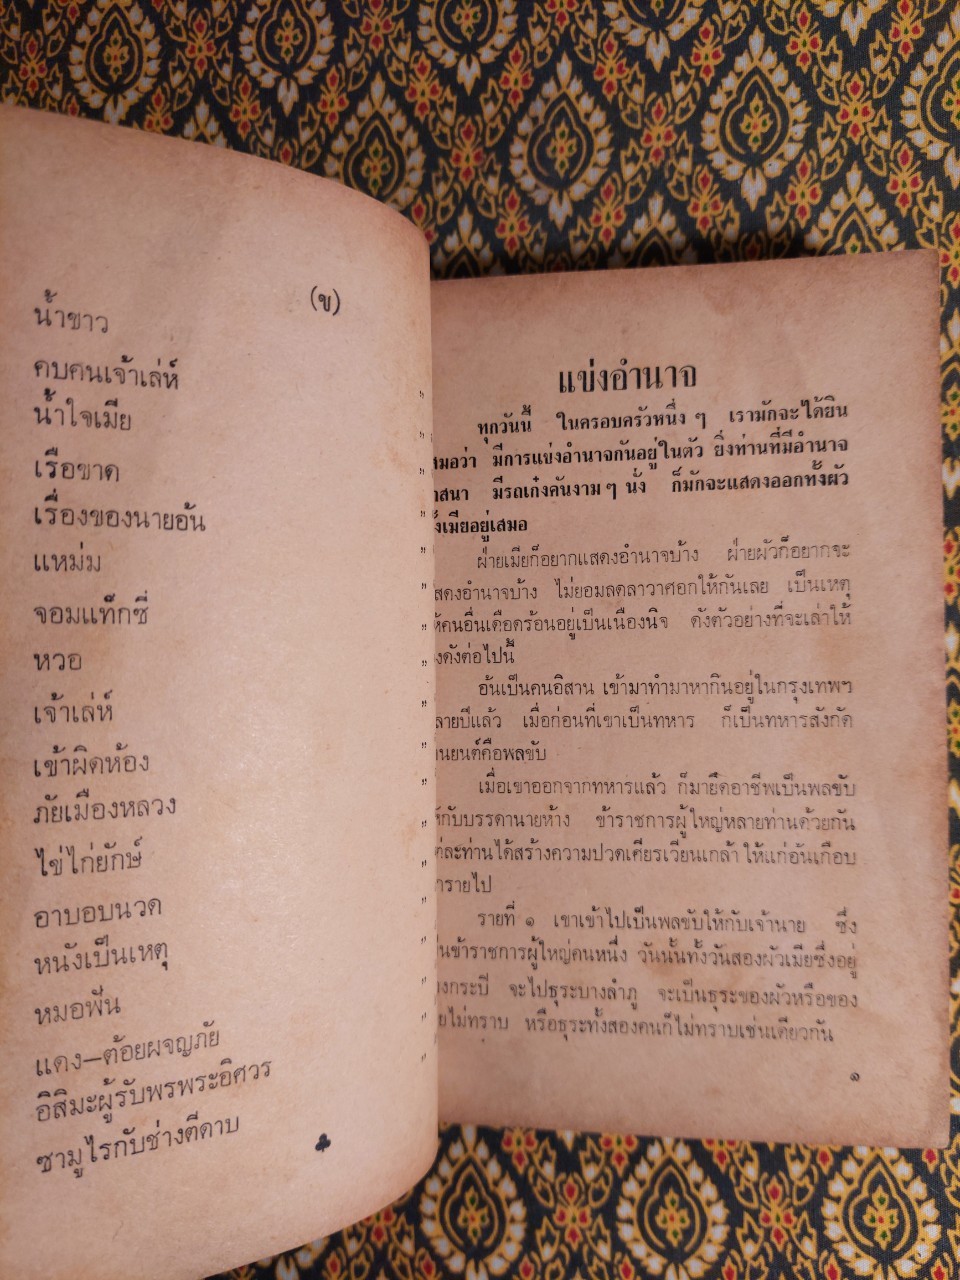 (ข)
น้ำขาว
คบคนเจ้าเล่ห์
น้ำใจเมีย
เรือขาด
เรื่องของนายอ้น
แหม่ม
จอมแท็กซี่
หวอ
เจ้าเล่ห์
เข้าผิดห้อง
ภัยเมืองหลวง
ไข่ไก่ยักษ์
อาบอบนวด
หนังเป็นเหตุ
หมอฟัน
แดง–ต้อยผจญภัย
อิสิมะผู้รับพรพระอิศวร
ซามูไรกับช่างตีดาบ
แข่งอำนาจ
ทุกวันนี้ ในครอบครัวหนึ่ง ๆ เรามักจะได้ยิน
มอว่า มีการแข่งอำนาจกันอยู่ในตัว ยิ่งท่านที่มีอำนาจ
สนา มีรถเก๋งคันงาม ๆ นั่ง ก็มักจะแสดงออกทั้งผัว
งเมียอยู่เสมอ
ฝ่ายเมียก็อยากแสดงอำนาจบ้าง ฝ่ายผัวก็อยากจะ
สดงอำนาจบ้าง ไม่ยอมลดลาวาศอกให้กันเลย เป็นเหตุ
ห้คนอื่นเดือดร้อนอยู่เป็นเนืองนิจ ดังตัวอย่างที่จะเล่าให้
งดังต่อไปนี้
อ้นเป็นคนอิสาน เข้ามาทำมาหากินอยู่ในกรุงเทพฯ
ลายปีแล้ว เมื่อก่อนที่เขาเป็นทหาร ก็เป็นทหารสังกัด
นยนต์คือพลขับ
เมื่อเขาออกจากทหารแล้ว ก็มายึดอาชีพเป็นพลขับ
ห้กับบรรดานายห้าง ข้าราชการผู้ใหญ่หลายท่านด้วยกัน
ต่ละท่านได้สร้างความปวดเศียรเวียนเกล้า ให้แก่อ้นเกือบ
ารายไป
รายที่ ๑ เขาเข้าไปเป็นพลขับให้กับเจ้านาย ซึ่ง
ป็นข้าราชการผู้ใหญ่คนหนึ่ง วันนั้นทั้งวันสองผัวเมียซึ่งอยู่
างกระปี จะไปธุระบางลำภู จะเป็นธุระของผัวหรือของ
ยไม่ทราบ หรือธุระทั้งสองคนก็ไม่ทราบเช่นเดียวกัน
๑